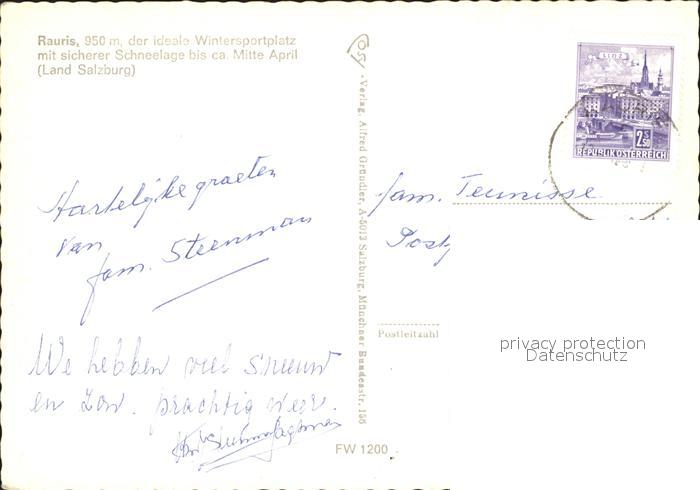 Rauris, 950 m, der ideale Wintersportplatz
mit sicherer Schneelage bis ca. Mitte April
(Land Salzburg)
Hartelijke groeten
van
fam. Steenman
We hebben veel sneeuw
en zon. prachtig weer.
FW 1200
Verlag Alfred Gründler, A-5013 Salzburg, Münchner Bundesstr. 156
LINZ
2 S 50
REPUBLIK ÖSTERREICH
fam. Teunisse
Postleitzahl
privacy protection
Datenschutz